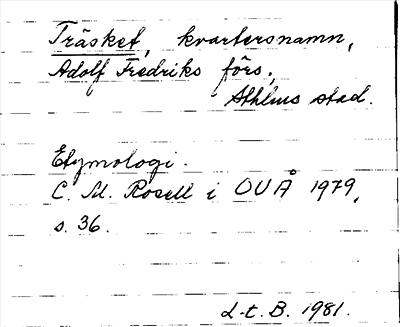 Träsket, kvartersnamn,
Adolf Fredriks förs.,
Sthlms stad.
Etymologi.
C. M. Rosell i OUÅ 1979,
s. 36.
L-t. B. 1981.